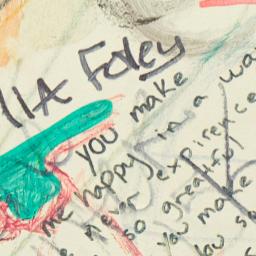 llA Foley
you make
me happy in a wa
never expirence
so greatful
you make
you so